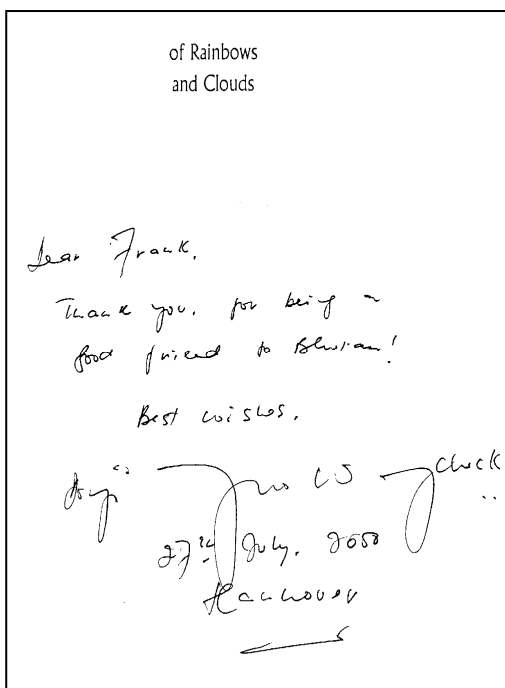 of Rainbows
and Clouds
Dear Frank,
Thank you, for being a
good friend to Bhutan!
Best wishes,
27th July, 2000
Hannover